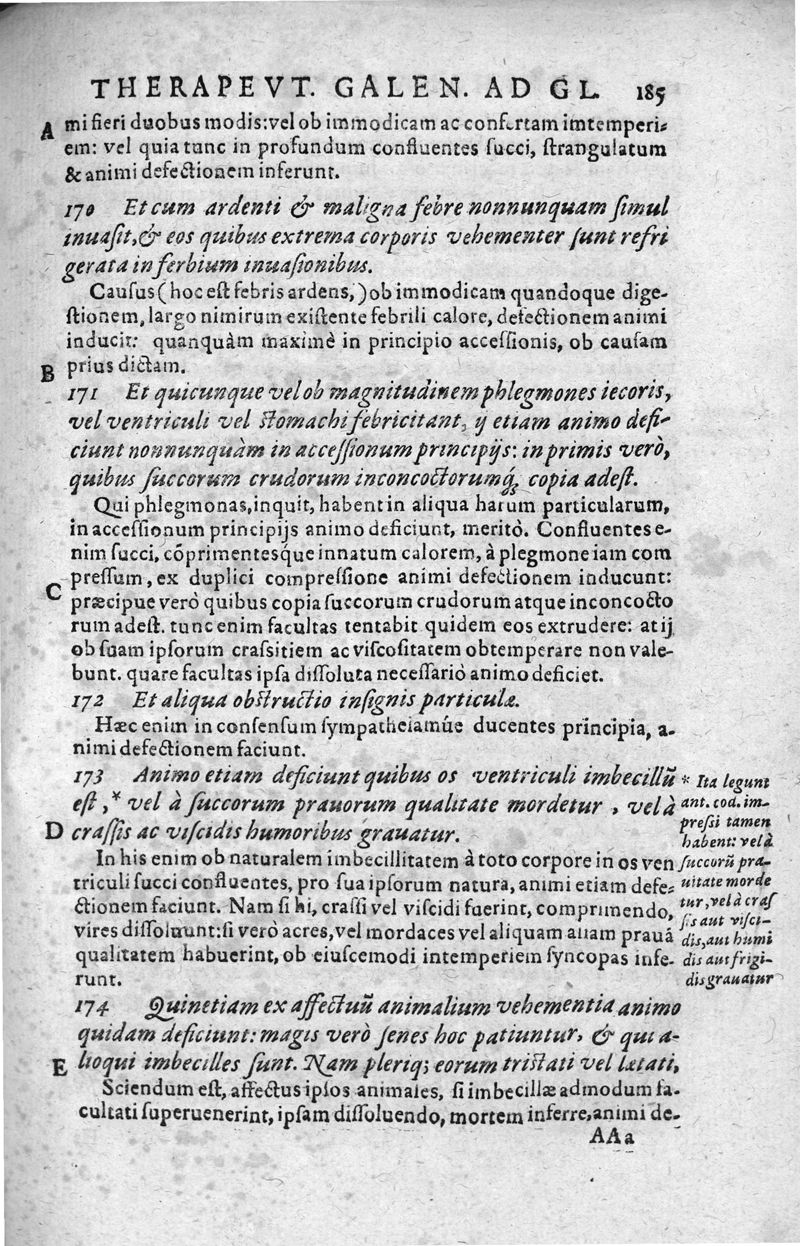 THERAPEVT. GALEN. AD GL. 185
A mi fieri duobus modis: vel ob immodicam ac confertam imtemperi⸗
em: vel quia tunc in profundum confluentes ſucci, ſtrangulatum
& animi defectionem inferunt.
170 Et cum ardenti & maligna febre nonnunquam ſimul
inuaſit, & eos quibus extrema corporis vehementer ſunt refri
gerata inferbium inuaſionibus.
Cauſus (hoc eſt febris ardens,) ob immodicam quandoque dige-
ſtionem, largo nimirum exiſtente febrili calore, defectionem animi
inducit: quanquàm maximè in principio acceſſionis, ob cauſam
B prius dictam.
171 Et quicunque vel ob magnitudinem phlegmones iecoris,
vel ventriculi vel ſtomachi febricitant, ij etiam animo defi-
ciunt nonnunquàm in acceſſionum principijs: in primis verò,
quibus ſuccorum crudorum inconcoctorumq́; copia adeſt.
Qui phlegmonas, inquit, habent in aliqua harum particularum,
in acceſſionum principijs animo deficiunt, meritò. Confluentes e-
nim ſucci, cōprimentesq́ue innatum calorem, à plegmone iam com
preſſum, ex duplici compreſſione animi defectionem inducunt:
C præcipue verò quibus copia ſuccorum crudorum atque inconcocto
rum adeſt. tunc enim facultas tentabit quidem eos extrudere: at ij
ob ſuam ipſorum craſsitiem ac viſcoſitatem obtemperare non vale-
bunt. quare facultas ipſa diſſoluta neceſſariò animo deficiet.
172 Et aliqua obſtructio inſignis particulæ.
Hæc enim in conſenſum ſympatheiamúe ducentes principia, a-
nimi defectionem faciunt.
173 Animo etiam deficiunt quibus os ventriculi imbecillū
eſt, * vel à ſuccorum prauorum qualitate mordetur, vel à
D craſsis ac viſcidis humoribus grauatur.
* Ita legunt
ant. cod. im-
preſsi tamen
habent: vel à
ſuccorū pra-
uitate morde
tur, vel à craſ
ſis aut viſci-
dis, aut humi
dis aut frigi-
dis grauatur
In his enim ob naturalem imbecillitatem à toto corpore in os ven
triculi ſucci confluentes, pro ſua ipſorum natura, animi etiam defe⸗
ctionem faciunt. Nam ſi hi, craſſi vel viſcidi fuerint, comprimendo,
vires diſſoluunt: ſi verò acres, vel mordaces vel aliquam aliam prauā
qualitatem habuerint, ob eiuſcemodi intemperiem ſyncopas infe-
runt.
174 Quinetiam ex affectuū animalium vehementia animo
quidam deficiunt: magis verò ſenes hoc patiuntur, & qui a-
E lioqui imbecilles ſunt. Nam pleriq; eorum triſtati vel lætati,
Sciendum eſt, affectus ipſos animales, ſi imbecillæ admodum fa-
cultati ſuperuenerint, ipſam diſſoluendo, mortem inferre, animi de-
AAa